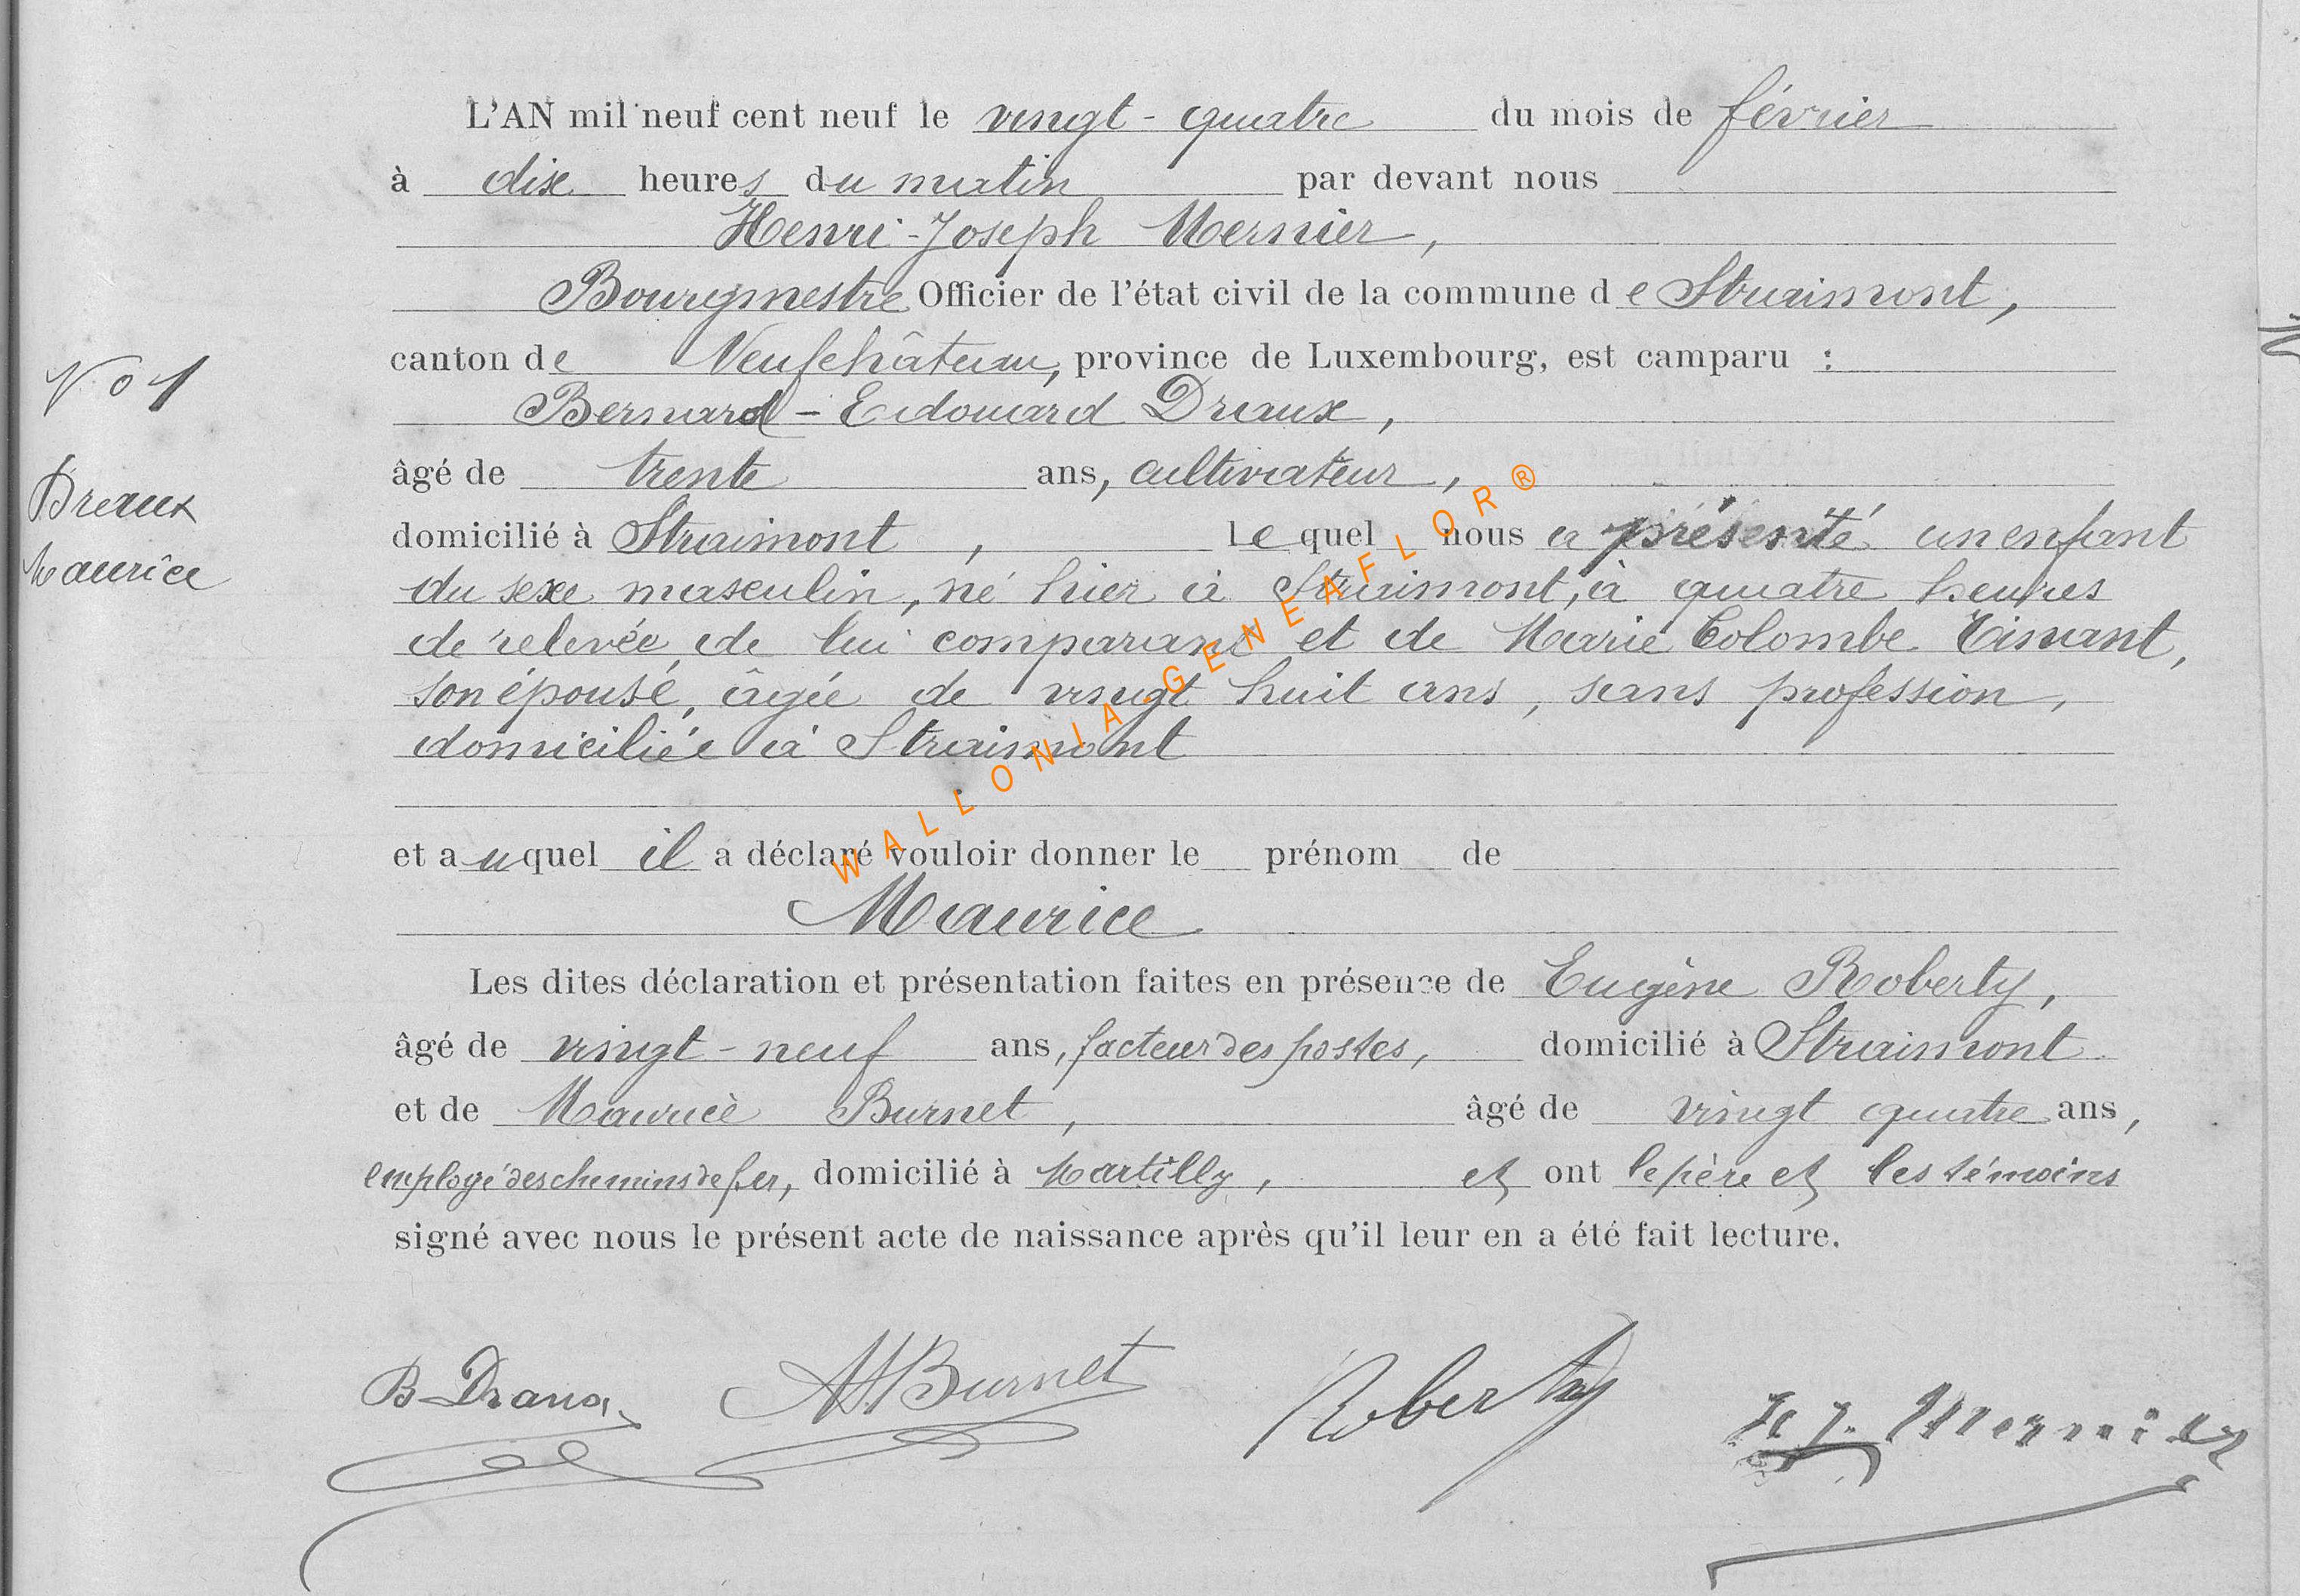 L'AN mil neuf cent neuf le vingt-quatre du mois de février
à dix heures du matin par devant nous
Henri-Joseph Mernier,
Bourgmestre Officier de l'état civil de la commune de Straimont,
canton de Neufchâteau, province de Luxembourg, est camparu :
N° 1
Bernard-Edouard Draux,
âgé de trente ans, cultivateur,
Draux
domicilié à Straimont, lequel nous a présenté un enfant
Maurice
du sexe masculin, né hier à Straimont, à quatre heures
de relevée, de lui comparant et de Marie Colombe
son épouse, âgée de vingt huit ans, sans profession,
domiciliée à Straimont
et auquel il a déclaré vouloir donner le prénom de
Maurice
Les dites déclaration et présentation faites en présence de Eugène Roberty,
âgé de vingt-neuf ans, facteur des postes, domicilié à Straimont
et de Maurice Burnet, âgé de vingt quatre ans,
employé des chemins de fer, domicilié à Martilly, et ont le père et les témoins
signé avec nous le présent acte de naissance après qu'il leur en a été fait lecture.
B Draux MBurnet Roberty H J. Mernier
WALLONIA GENEAFLOR®